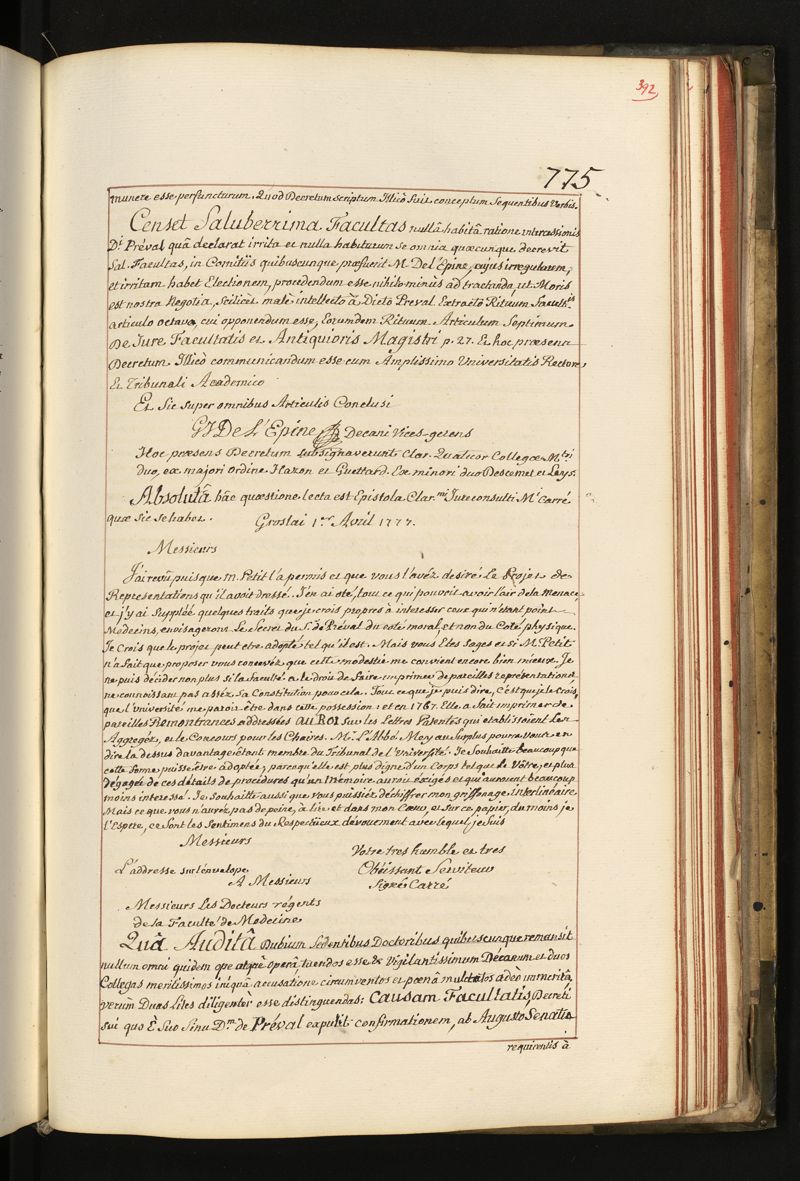 392
775
munere esse perfuncturum. Quod Decretum scriptum Illicò fuit conceptum Sequentibus Verbis.
Censet Saluberrima Facultas nullâ habitâ ratione intercessionis
Di Préval quâ declarat irrita et nulla habiturum se omnia quæcunque decrevit
Sal. Facultas, in Comitiis quibuscunque præfuerit M. De l'Epine, cujus irregularem,
et irritam habet Electionem, procedendum esse nihilominùs ad tractanda, ut Moris
est nostra Negotia, Scilicet male intellecto à Dicto Preval Extracto Rituum Facultis
articulo octavo, cui opponendum esse, Eorumdem Rituum Articulum Septimum
De Jure Facultatis et Antiquioris Magistri p. 27. Et hoc præsens
Decretum Illicò communicandum esse cum Amplissimo Universitatis Rectore,
Et Tribunali Academico
Et Sic super omnibus Articulis Conclusi
De L'Epine Decani Vices-gerens
Hoc præsens Decretum subsignaverunt Clar. Quatuor Collegæ Mtri
duo, ex majori ordine Hazon et Guettard. Ex minori duo Descemet et Leys.
Absolutâ hâc quæstione lecta est Epistola Clarmi Jureconsulti Mi Carré
quæ sic se habet. Groslai 1er Avril 1777.
Messieurs
J'ai revû puisque M. Petit l'a permis et que vous l'avéz desiré le Projet de
Représentations qu'il avoit dressé. J'en ai oté, tout ce qui pouvoit avoir l'air de la menace
et j'y ai Suppléé quelques traits que je crois propres à interesser ceux qui n'étant point
Médecins, envisageront Le Secret du S. de Préval du coté moral, et non du Coté physique.
Je Crois que le projet peut etre adopté tel qu'il est. Mais vous Etes Sages et si M. Petit
n'a fait que proposer vous concevéz que cette modestie me convient encore bien mieux. Je
ne puis décider non plus si la faculté a le droit de faire imprimer de pareilles représentations
ne connoissant pas asséz sa Constitution pour cela. Tout ce que je puis dire, c'est que je la crois,
que l'Université me paroit être dans cette possession: et en 1767. Elle a fait imprimer de
pareilles Remontrances addressées AU ROI sur les Lettres Patentes qui établissoient les
Aggrégéz, et le Concours pour les Chaires. Mr. L'Abbé Mey au Surplus pourra vous en
dire la dessus davantage étant membre du Tribunal de l'Université. Je Souhaitte beaucoup que
cette forme puisse être adoptée, parce qu'elle est plus digne d'un Corps tel que le Vôtre, et plus
Dégagée de ces détails de procédures qu'un Mémoire auroit éxigés et qui auroient beaucoup
moins interessé. Je souhaitte aussi que vous puissiéz déchiffrer mon griffonage interlinéaire
Mais ce que vous n'auréz pas de peine, à lire et dans mon Cœur, et sur ce papier, du moins je
l'Espere, ce sont les Sentimens du Respectüeux dévouement avec lequel je suis
Messieurs
Votre tres humble et tres
L'addresse sur l'énvelope, Obéissant Serviteur
A Messieurs Signé Carré
Messieurs Les Docteurs régents
de la Faculté de Medecine
Quâ Auditâ Dubium Sedentibus Doctoribus quibuscunque remansit
nullum omni quidem ope atquè operâ tuendos esse & Vigilantissimum Decanum et duos
Collegas meritissimos iniquâ accusatione circumventos et pœnâ multatos adeò immeritâ,
verùm Duas Lites diligentèr esse distinguendas: Causam Facultatis Decreti
sui quo È Suo Sinu Dm. de Préval expulit confirmationem, ab Augusto Senatu
requirentis à